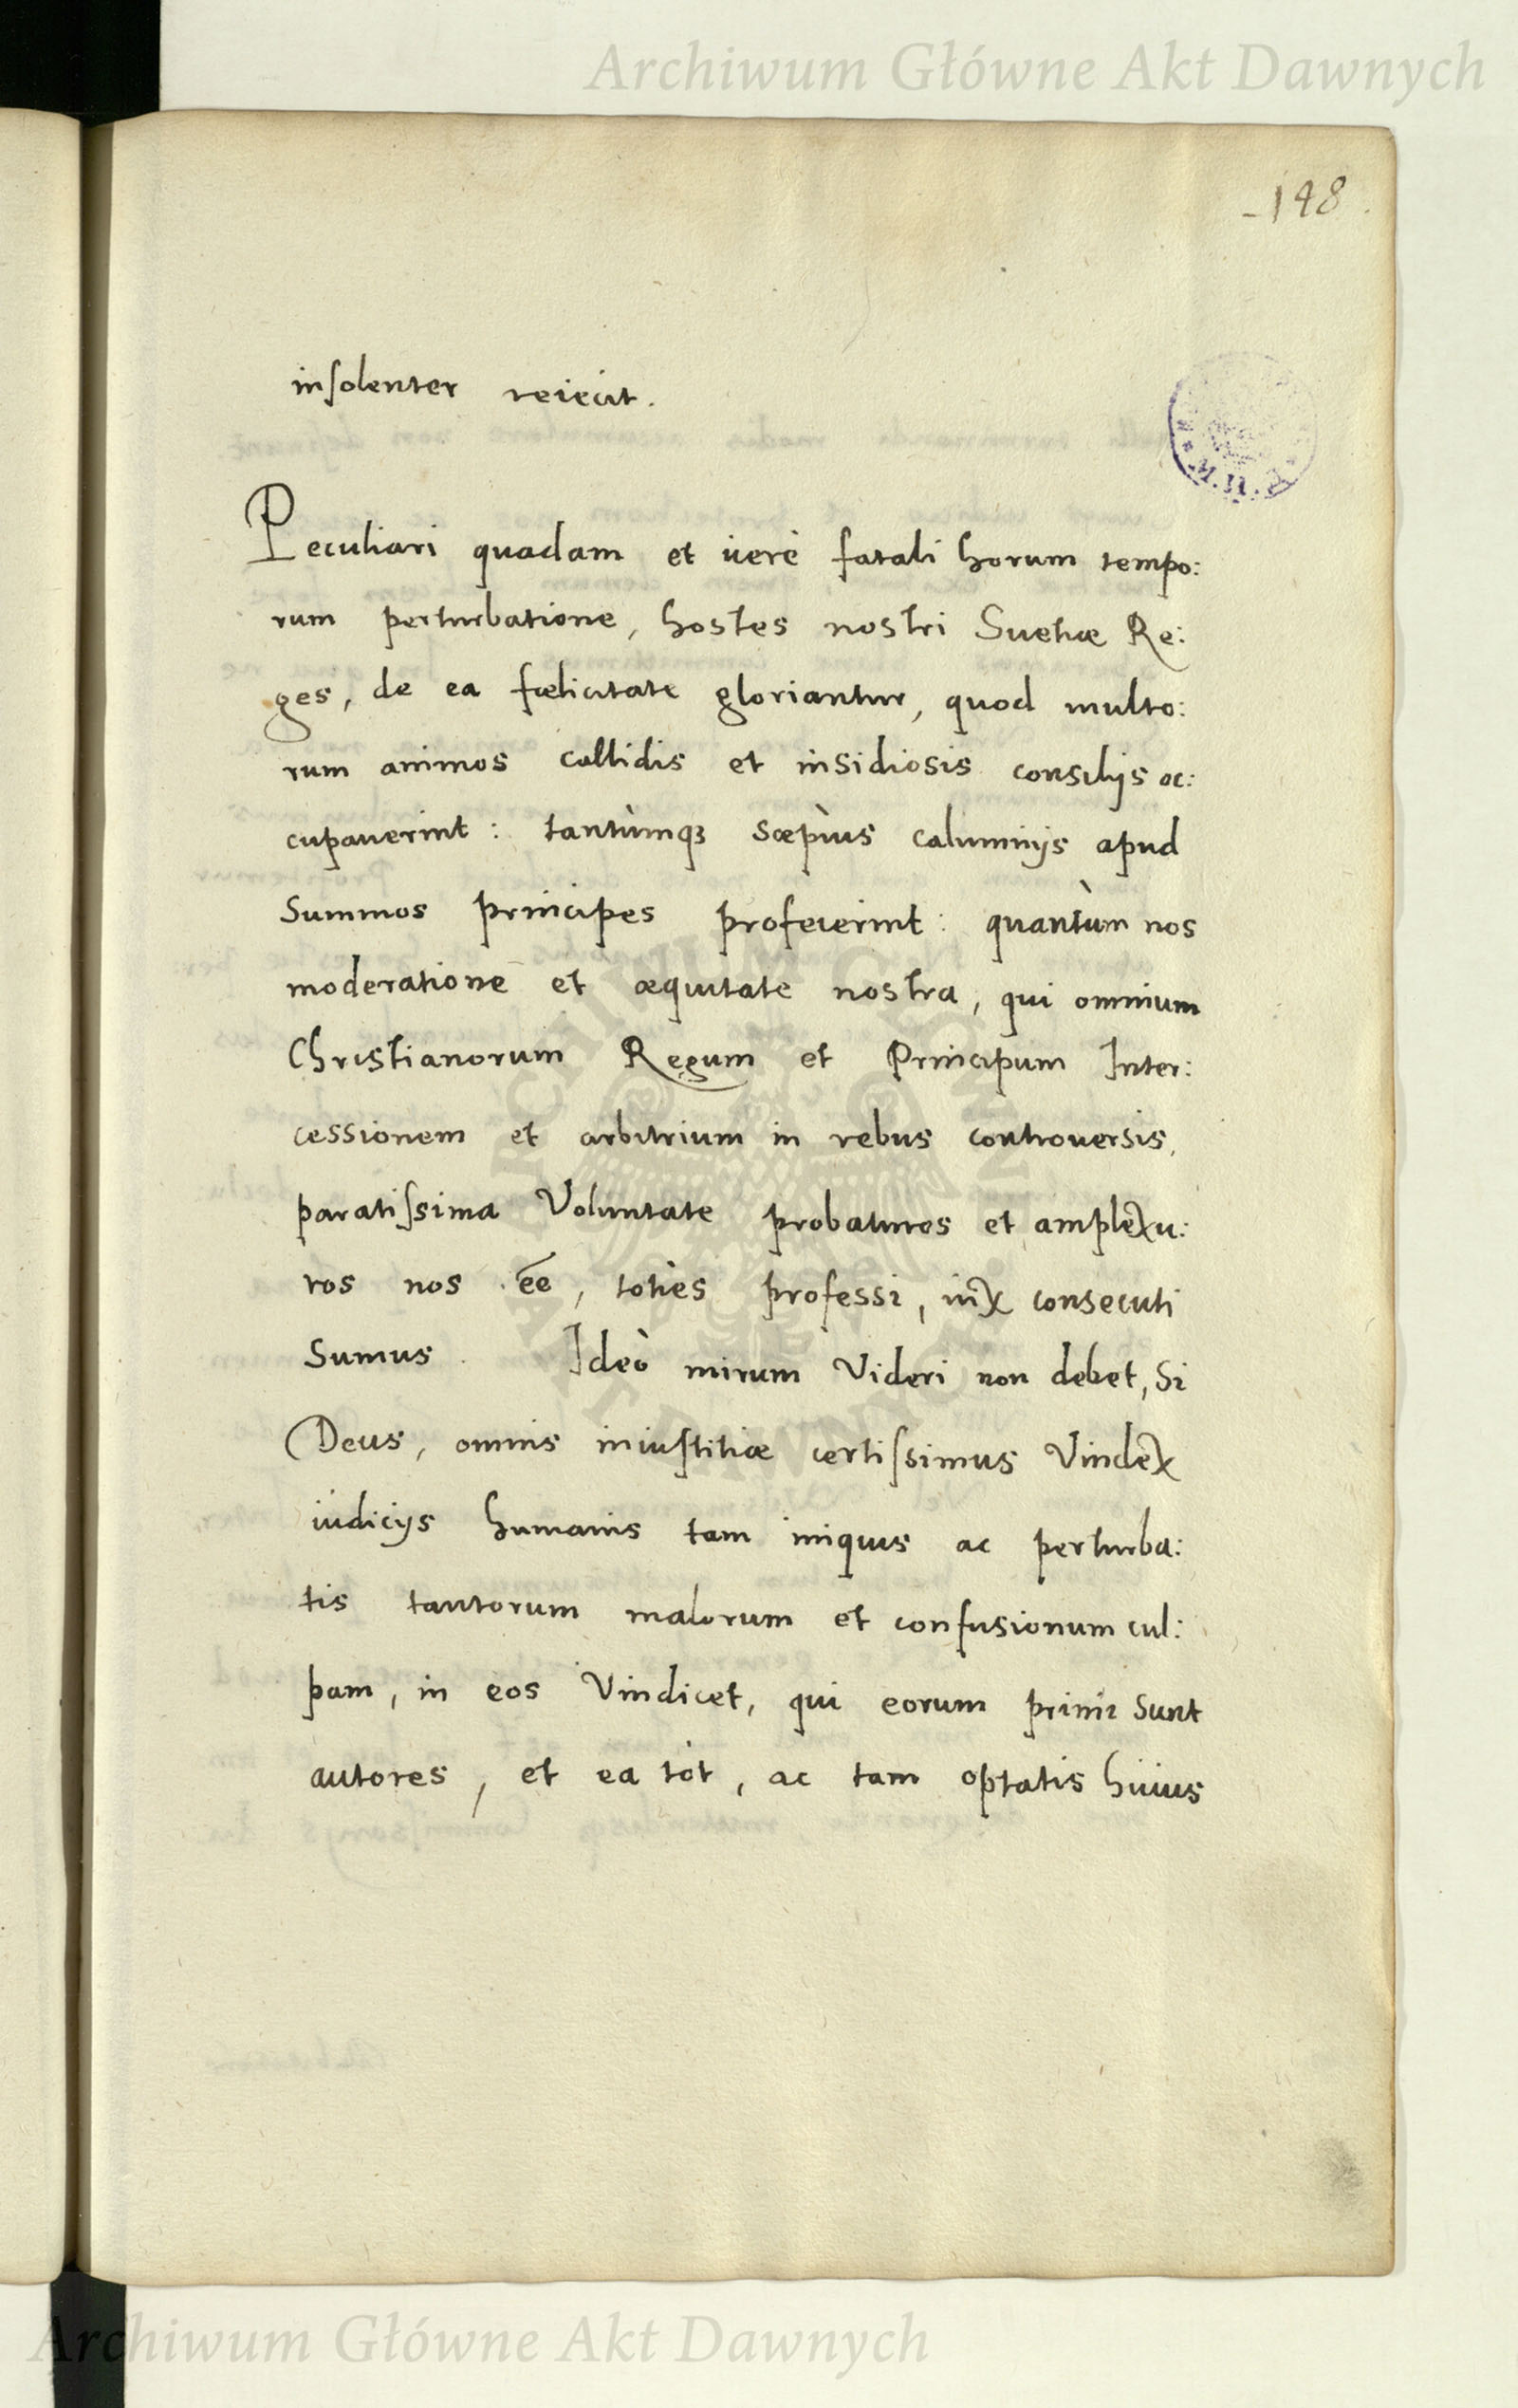 Archiwum Główne Akt Dawnych
-198.
insolenter reiecit.
Peculiari quadam et uerè fatali horum tempo:
rum perturbatione, hostes nostri Suetiæ Re:
ges, de ea fœlicitate gloriantur, quod multo:
rum animos callidis et insidiosis consilijs oc:
cupauerint: tantùmqꝫ sæpiùs calumnijs apud
Summos principes profecerint: quantùm nos
moderatione et æquitate nostra, qui omnium
Christianorum Regum et Principum Inter:
cessionem et arbitrium in rebus controuersis,
paratiſsima Voluntate probaturos et amplexu:
ros nos ēē, totiès professi, uix consecuti
Sumus. Ideò mirum Videri non debet, Si
Deus, omnis iniuſtitiæ certiſsimus Vindex
iudicijs humanis tam iniquis ac perturba:
tis tantorum malorum et confusionum cul:
pam, in eos Vindicet, qui eorum primi Sunt
autores, et ea tot, ac tam optatis huius
Archiwum Główne Akt Dawnych